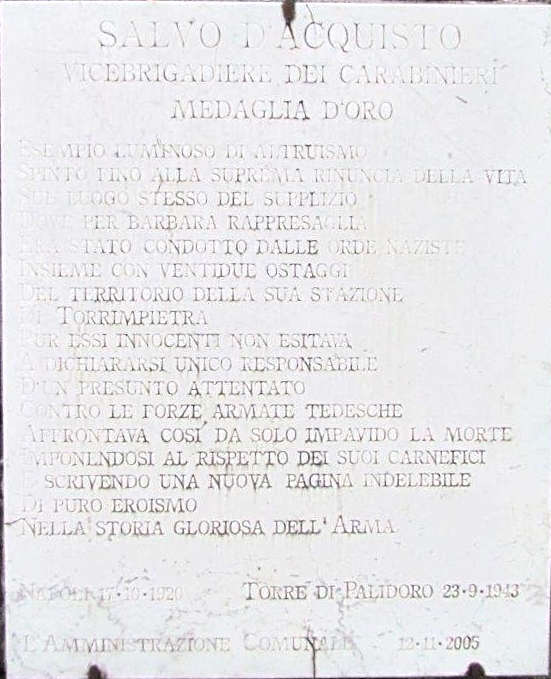 SALVO D'ACQUISTO
VICEBRIGADIERE DEI CARABINIERI
MEDAGLIA D'ORO
ESEMPIO LUMINOSO DI ALTRUISMO
SPINTO FINO ALLA SUPREMA RINUNCIA DELLA VITA
SUL LUOGO STESSO DEL SUPPLIZIO
DOVE PER BARBARA RAPPRESAGLIA
ERA STATO CONDOTTO DALLE ORDE NAZISTE
INSIEME CON VENTIDUE OSTAGGI
DEL TERRITORIO DELLA SUA STAZIONE
DI TORRIMPIETRA
PUR ESSI INNOCENTI NON ESITAVA
A DICHIARARSI UNICO RESPONSABILE
D'UN PRESUNTO ATTENTATO
CONTRO LE FORZE ARMATE TEDESCHE
AFFRONTAVA COSI' DA SOLO IMPAVIDO LA MORTE
IMPONENDOSI AL RISPETTO DEI SUOI CARNEFICI
E SCRIVENDO UNA NUOVA PAGINA INDELEBILE
DI PURO EROISMO
NELLA STORIA GLORIOSA DELL'ARMA
NAPOLI 17·10·1920 TORRE DI PALIDORO 23·9·1943
L'AMMINISTRAZIONE COMUNALE 12·11·2005